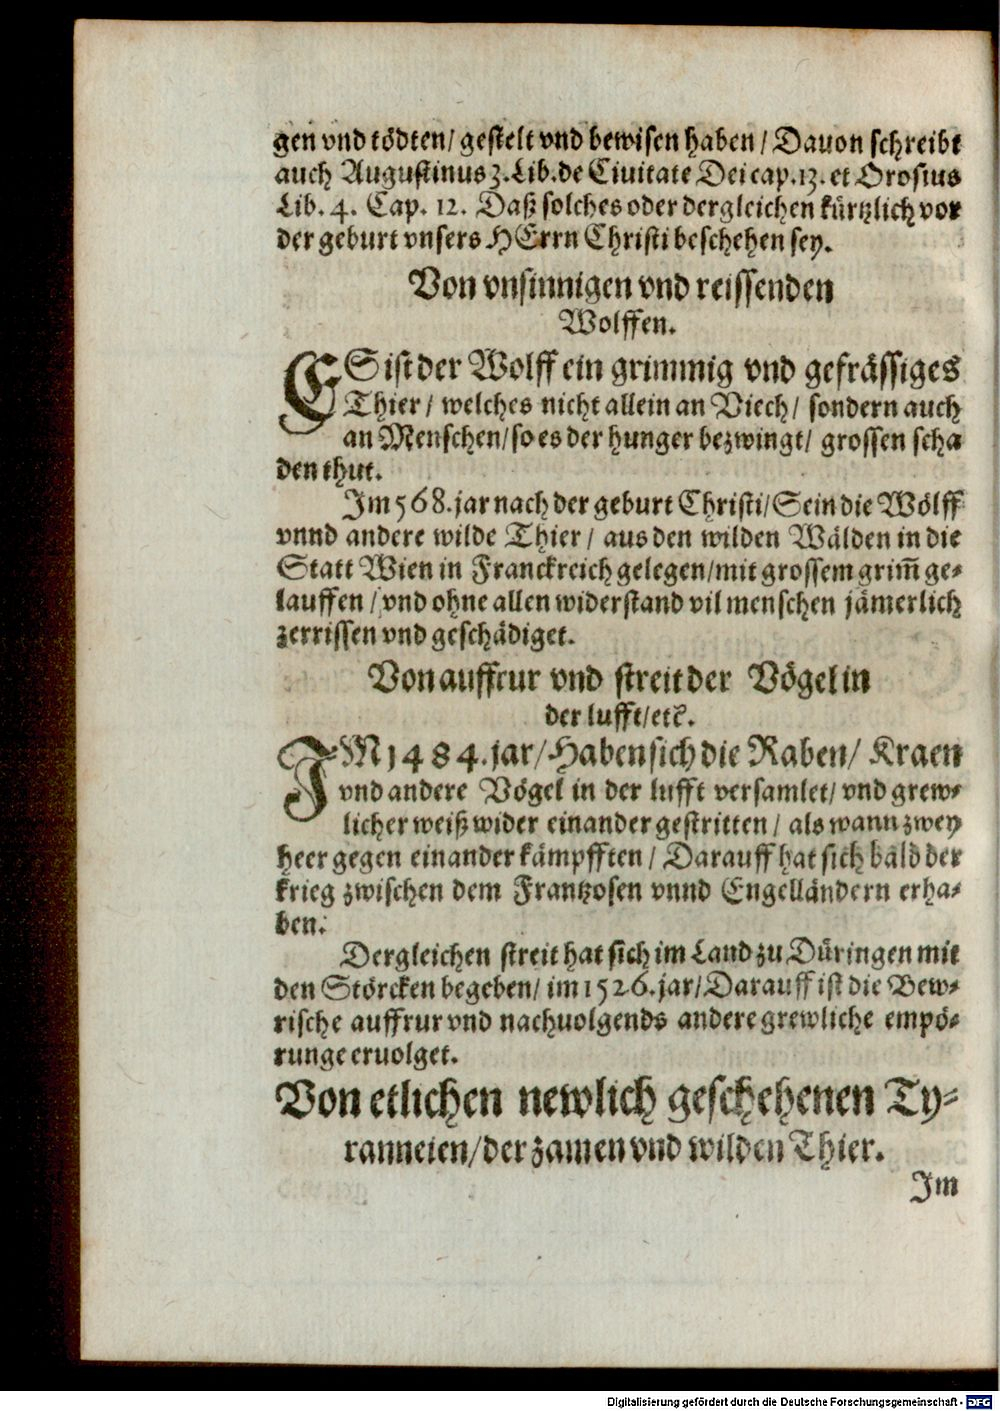 gen vnd tödten/ gestelt vnd bewisen haben / Dauon schreibt
auch Augustinus 3. Lib. de Ciuitate Dei cap. 13. et Orosius
Lib. 4. Cap. 12. Daß solches oder dergleichen kürtzlich vor
der geburt vnsers HErrn Christi beschehen sey.
Von vnsinnigen vnd reissenden
Wolffen.
ES ist der Wolff ein grimmig vnd gefrässiges
Thier / welches nicht allein an Viech / sondern auch
an Menschen/ so es der hunger bezwingt/ grossen scha
den thut.
Im 568. jar nach der geburt Christi/ Sein die Wölff
vnnd andere wilde Thier / aus den wilden Wälden in die
Statt Wien in Franckreich gelegen/ mit grossem grim̄ ge-
lauffen / vnd ohne allen widerstand vil menschen jämerlich
zerrissen vnd geschädiget.
Von auffrur vnd streit der Vögel in
der lufft/ etc.
IM 1484. jar/ Haben sich die Raben/ Kraen
vnd andere Vögel in der lufft versamlet/ vnd grew-
licher weiß wider einander gestritten / als wann zwey
heer gegen einander kämpfften / Darauff hat sich bald der
krieg zwischen dem Frantzosen vnnd Engelländern erha-
ben.
Dergleichen streit hat sich im Land zu Düringen mit
den Störcken begeben/ im 1526. jar/ Darauff ist die Bew-
rische auffrur vnd nachuolgends andere grewliche empö-
runge eruolget.
Von etlichen newlich geschehenen Ty-
ranneien/ der zamen vnd wilden Thier.
Im
Digitalisierung gefördert durch die Deutsche Forschungsgemeinschaft - DFG